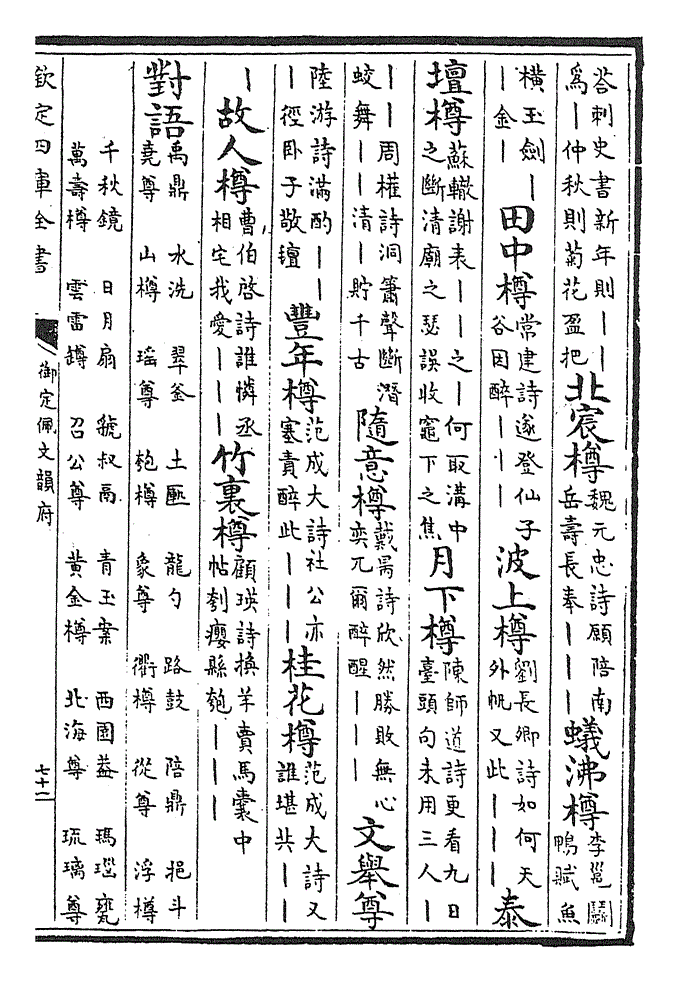 荅刺史書新年則丨丨爲丨仲秋則菊花盈把北宸樽魏元忠詩願陪南岳壽長奉丨丨丨蟻沸樽李邕鬭鴨賦魚
橫玉劍丨丨金丨田中樽常建詩遂登仙子谷因醉丨丨丨波上樽劉長卿詩如何天外帆又此丨丨丨泰
壇樽蘇轍謝表丨丨之丨何取溝中之斷清廟之瑟誤收竈下之焦月下樽陳師道詩更看九日臺頭句未用三人丨
丨丨周權詩洞簫聲斷潛蛟舞丨丨清丨貯千古隨意樽戴昺詩欣然勝敗無心奕兀爾醉醒丨丨丨文舉尊
陸游詩滿酌丨丨丨徑卧子敬氊豐年樽范成大詩社公亦塞責醉此丨丨丨桂花樽范成大詩又誰堪共丨丨
丨故人樽曹伯啓詩誰憐丞相宅我愛丨丨丨竹裏樽顧瑛詩換羊賣馬囊中帖刳癭縣匏丨丨丨
對語禹鼎堯尊 水洗山樽 翠釜瑶尊 土匭匏樽 龍勺象尊 路鼓衢樽 陪鼎從尊 挹斗浮樽
千秋鏡萬壽樽 日月扇雲雷罇 虢叔鬲召公尊 青玉案黄金樽 西園葢北海尊 瑪瑙甕琉璃尊
欽定四庫全書 御定佩文韻府 七十二